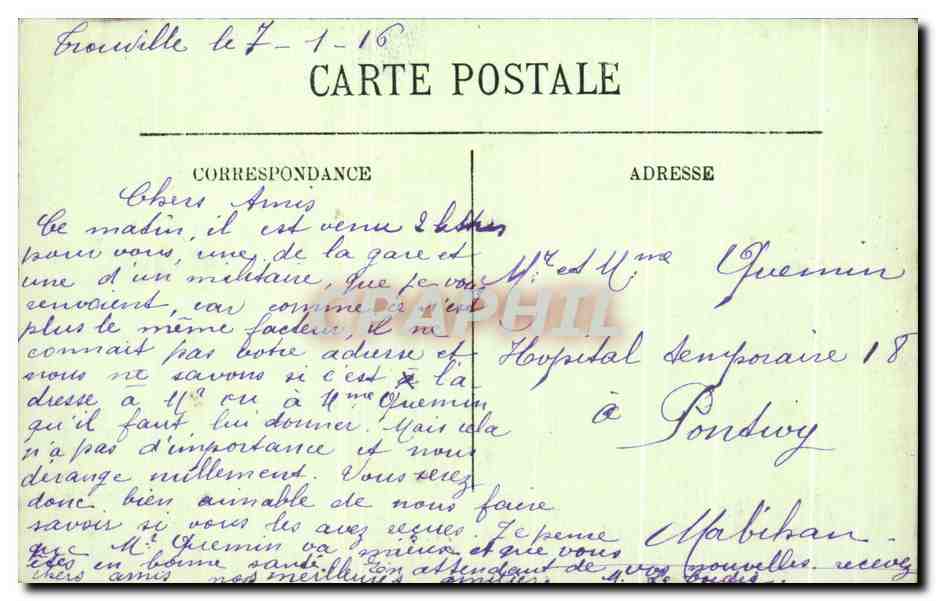 Trouville le 7-1-16
CARTE POSTALE
CORRESPONDANCE
Chers Amis
Ce matin, il est venu 2 lettres
pour vous, une de la gare et
une d'un militaire, que je vous
renvoient, car comme ce n'est
plus le même facteur, il ne
connait pas votre adresse et
nous ne savons si c'est à l'a-
dresse à Mr ou à Mme Quemin
qu'il faut lui donner. Mais cela
n'a pas d'importance et nous
dérange nullement. Vous serez
donc bien aimable de nous faire
savoir si vous les avez reçues. Je pense
que Mr Quemin va mieux et que vous
êtes en bonne santé. En attendant de vos nouvelles recevez
chers amis nos meilleures amitiés M.
ADRESSE
Mr et Mme Quemin
Hopital temporaire 18
à
Pontivy
Mabihan
GRAPHIL